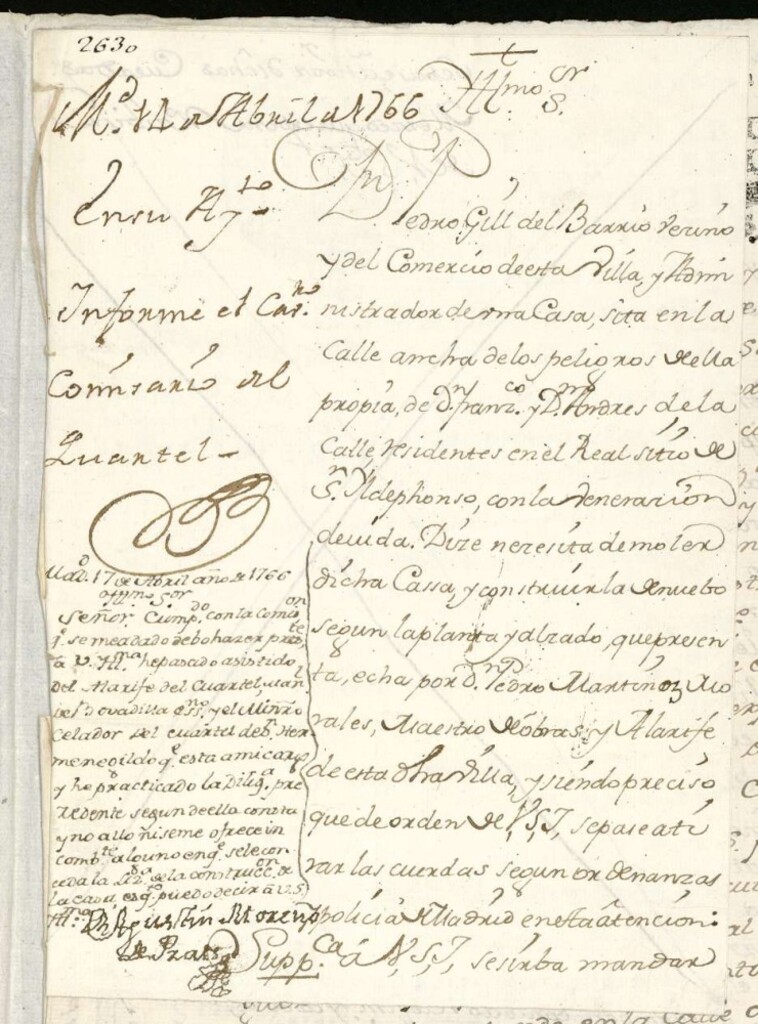 2630
M.d 14 de Abril de 1766
En su Ay.to
Informe el Cav.ro
Comisario del
Quartel -
Mad. 17 de Abril año de 1766
Ill.mo S.or
Señor. Cump.do con la Comis.on
q.e se me a dado debo hazer pres.te
a V. Ill.ma he pasado asistido
del Alarife del Cuartel, Juan
y el Minro
Celador del Cuartel de S.n Her
menegildo q.e esta a mi cargo
y he practicado la Dilig.a pre
zedente segun de ella consta
y no allo ni se me ofrece in
comb.te alguno en q.e se le con
ceda la Liz.a de la construcc.on de
la casa, es q.to puedo decir a V.S.
Ill.ma D. Agustin Moreno
de Prado
†
Ill.mo S.or
D.n Pedro Gill del Barrio vecino
y del Comercio de esta Villa, y Admi
nistrador de una Casa, sita en la
Calle ancha de los peligros de ella
propia, de D.n Franz.co y D.n Andres de la
Calle, residentes en el Real sitio de
S.n Ildephonso, con la veneracion
devida. Dize nezesita demoler
dicha Cassa, y construirla de nuebo
segun la planta y alzado, que presen
ta, echa por D.n Pedro Martinez Mo
rales, Maestro de obras y Alarife
de esta dha Villa, y siendo preciso
que de orden de V.S.I, se pase a ti
rar las cuerdas segun ordenanzas
polícia de Madrid en esta atencion:
Supp.ca á V.S.I, se sirba mandar